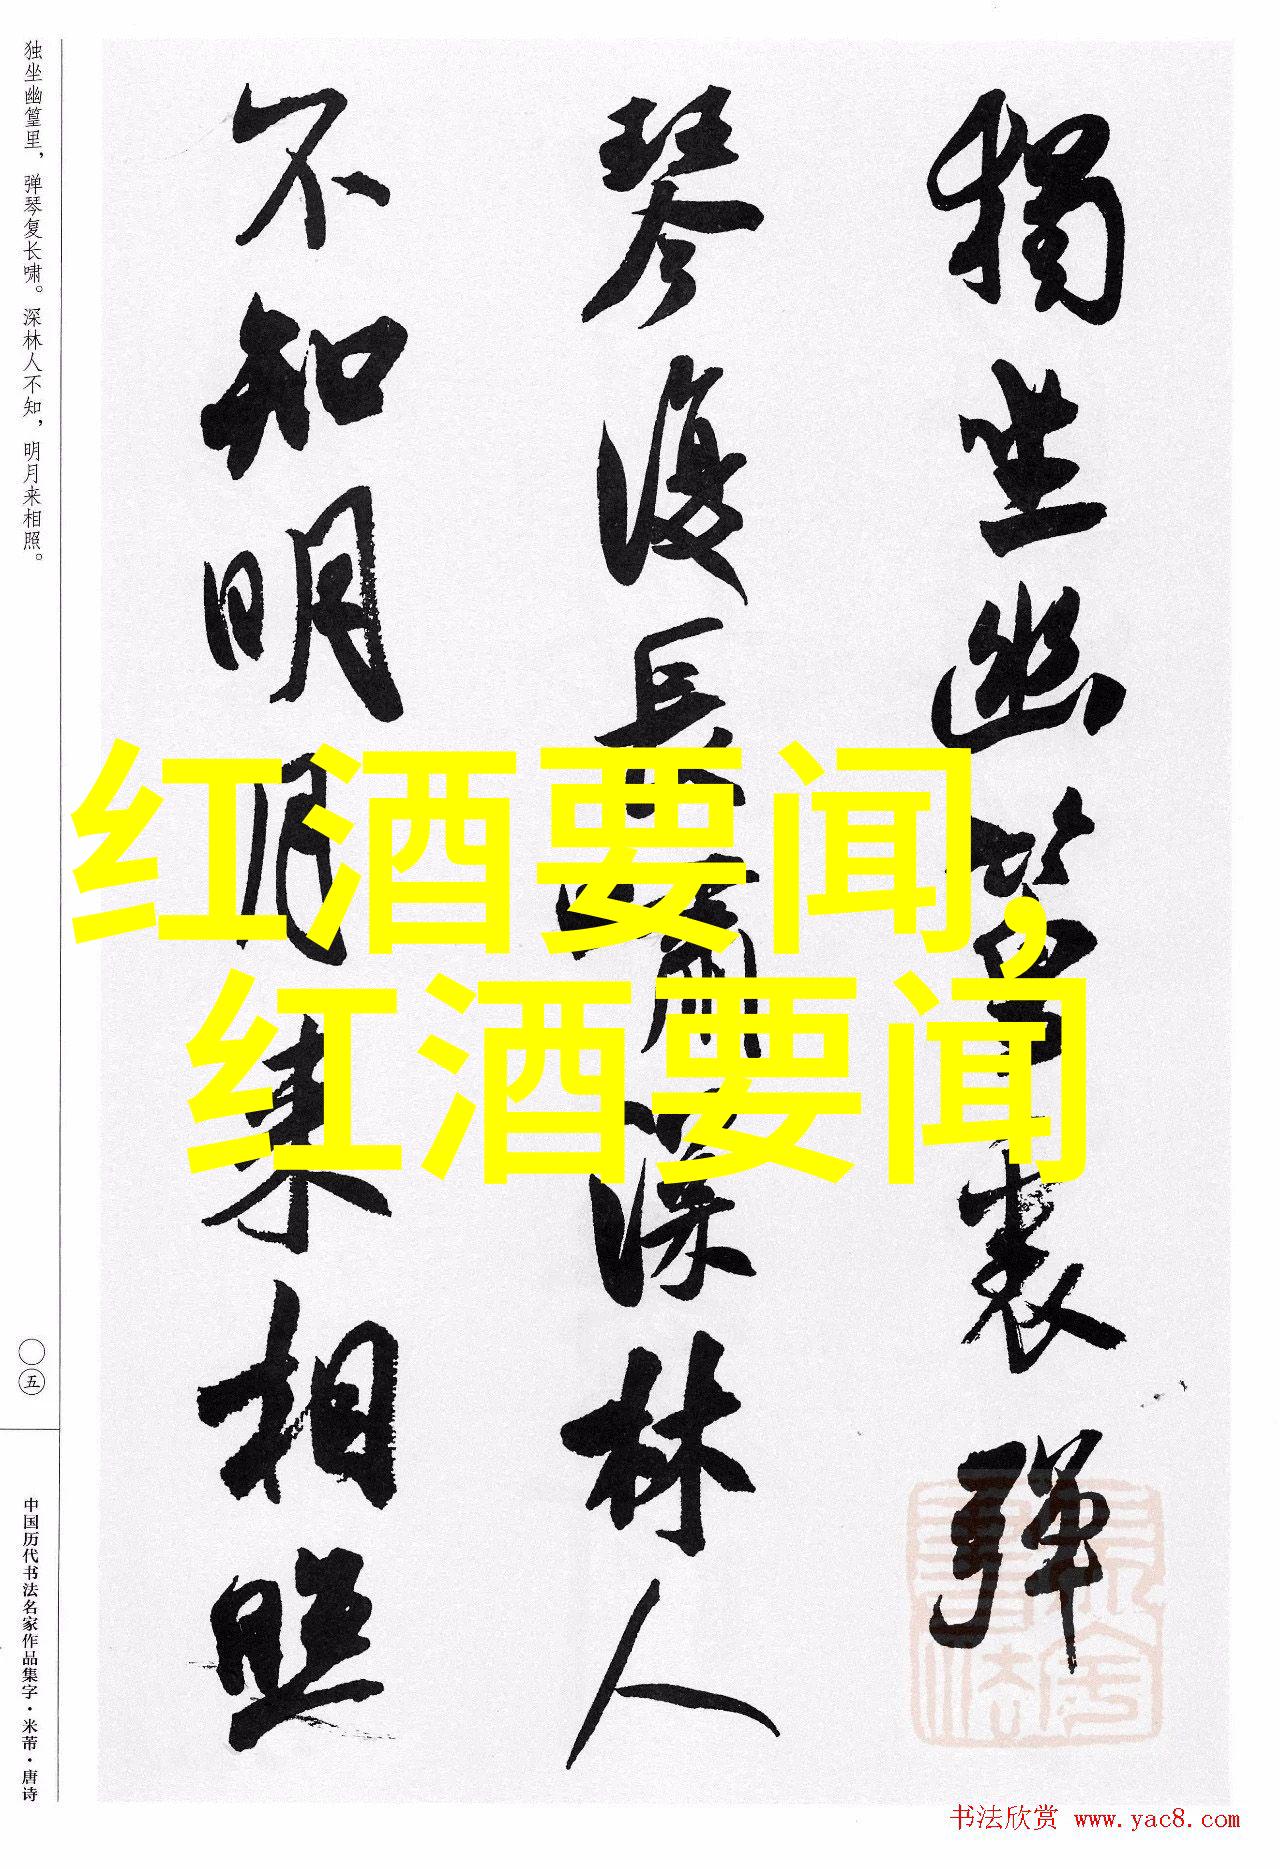 獨坐幽篁裏彈
琴復長嘯深林人
不知明月來相照
独坐幽篁里，弹琴复长啸。深林人不知，明月来相照。
〇五
中国历代书法名家作品集字·米芾·唐诗
红酒要闻,
红酒要闻
书法欣赏 www.yac8.com